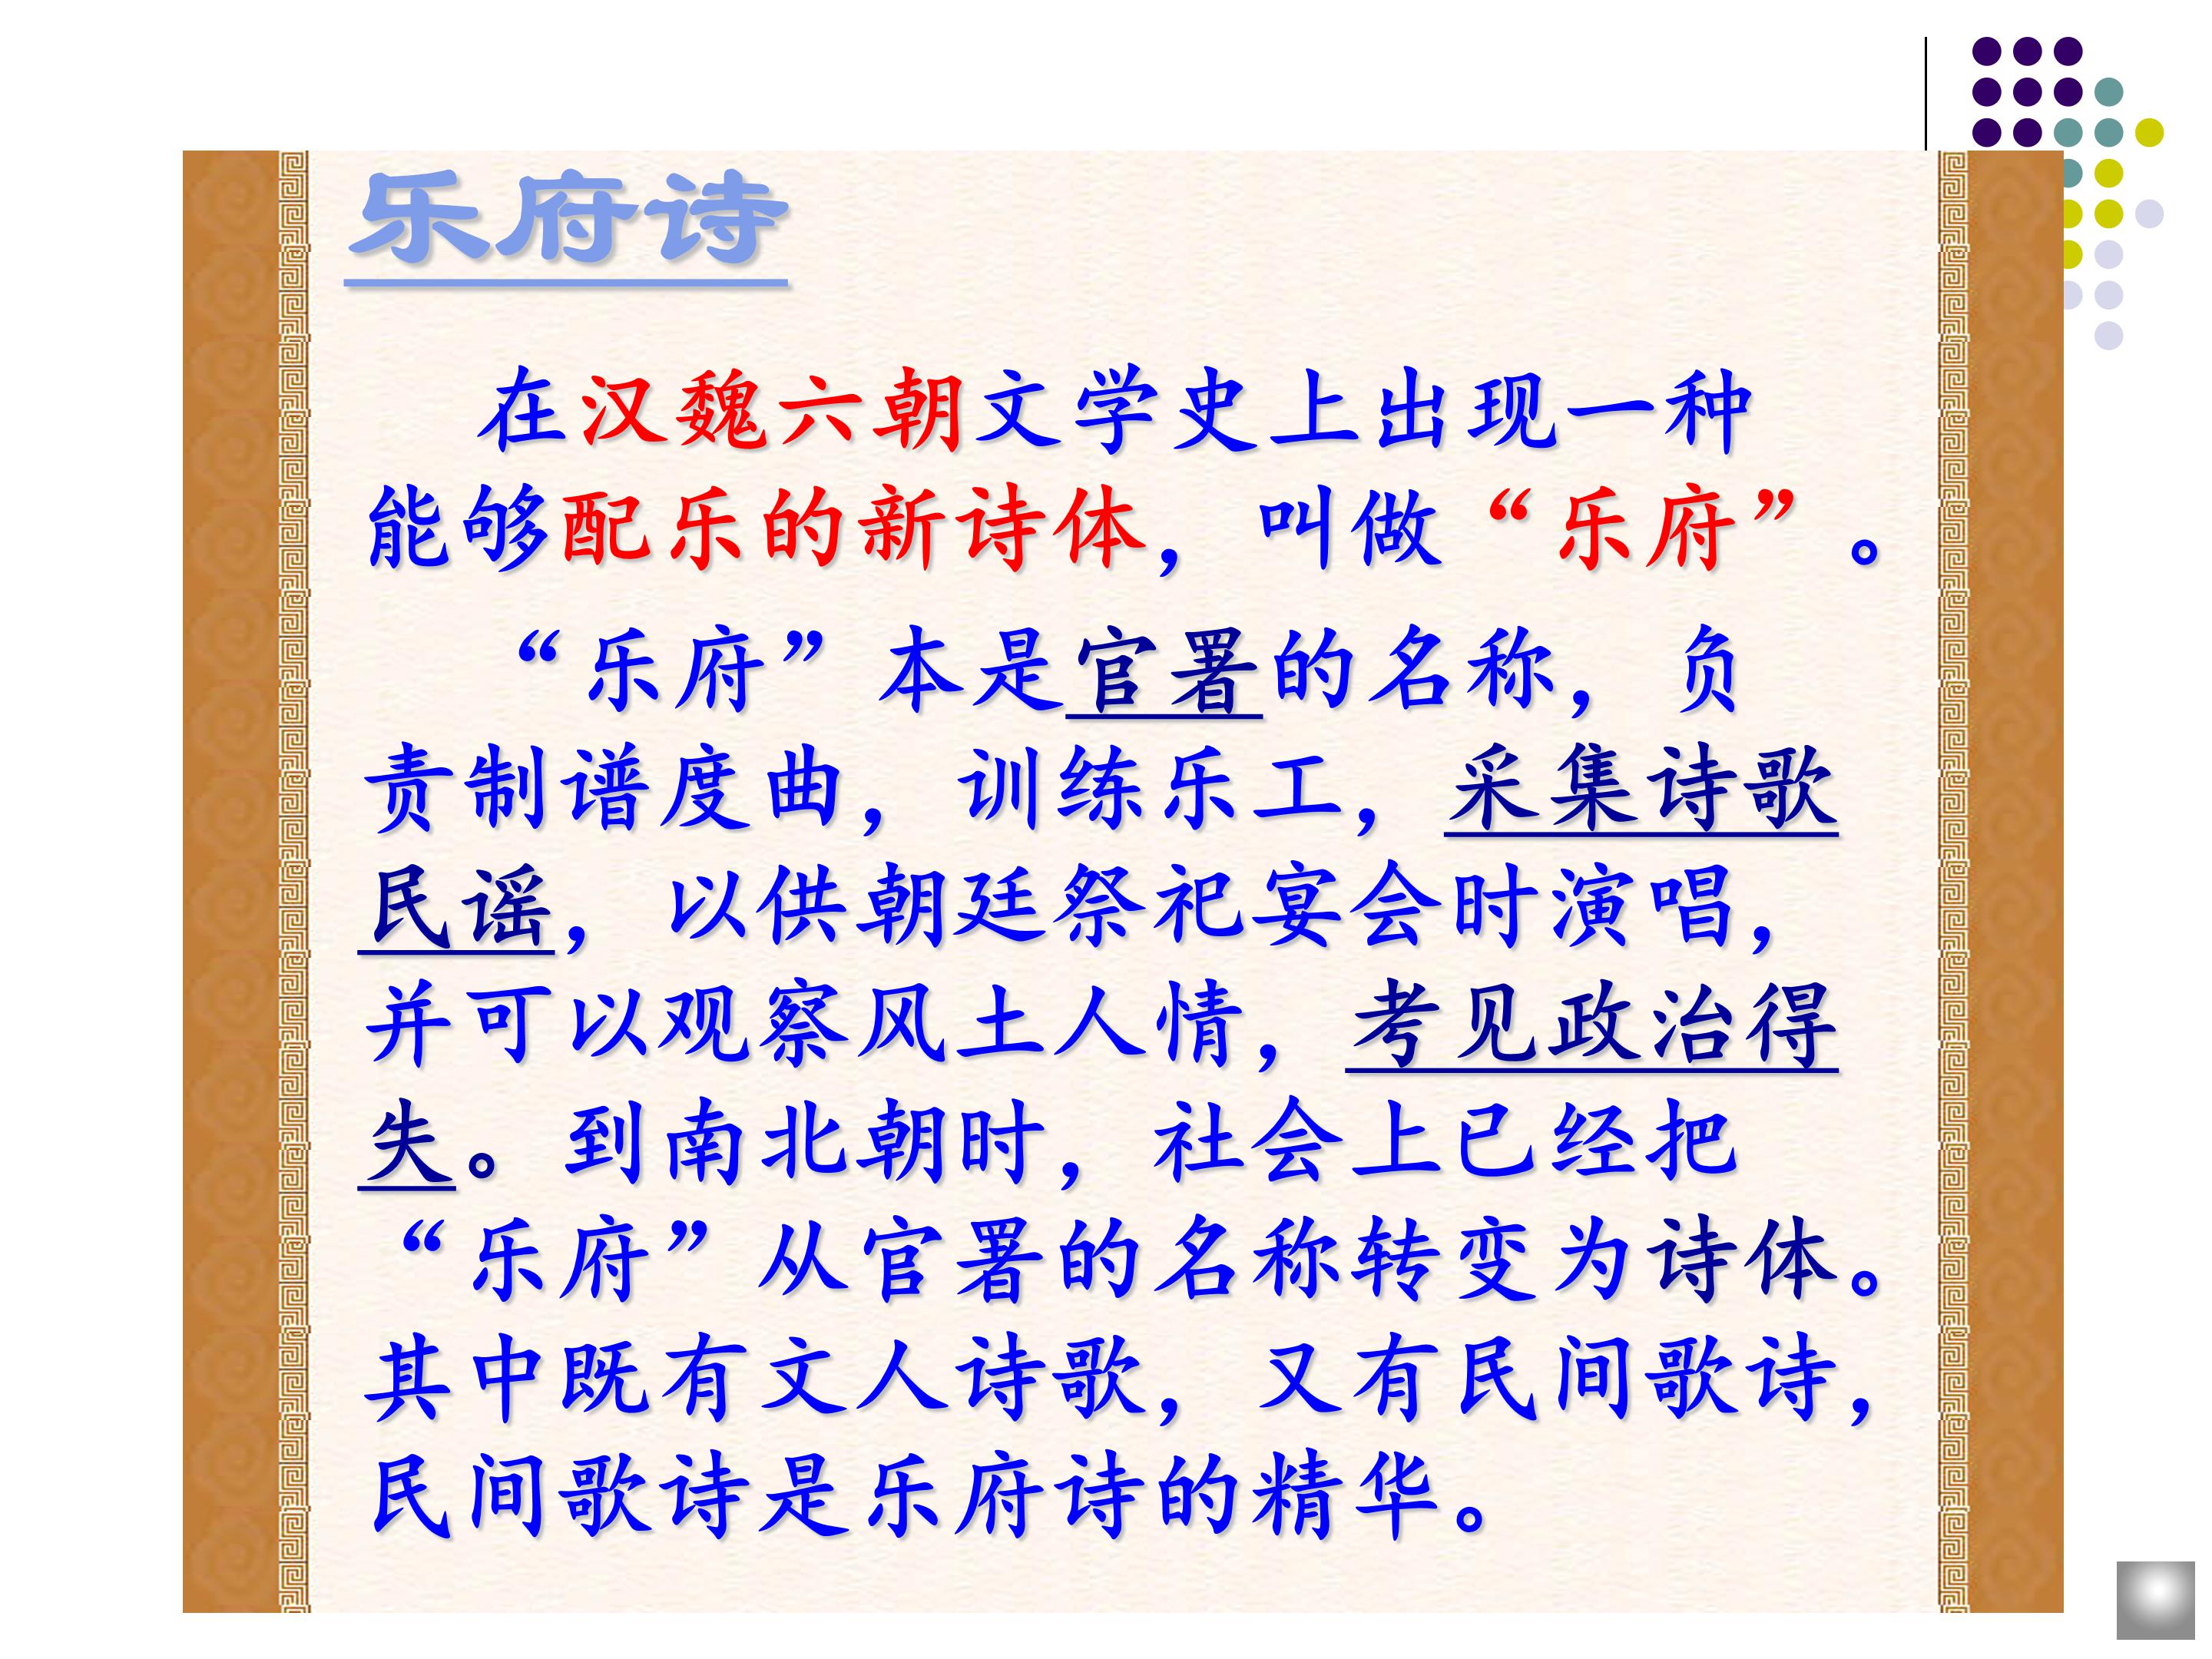 乐府诗
在汉魏六朝文学史上出现一种
能够配乐的新诗体，叫做“乐府”。
“乐府”本是官署的名称，负
责制谱度曲，训练乐工，采集诗歌
民谣，以供朝廷祭祀宴会时演唱，
并可以观察风土人情，考见政治得
失。到南北朝时，社会上已经把
“乐府”从官署的名称转变为诗体。
其中既有文人诗歌，又有民间歌诗，
民间歌诗是乐府诗的精华。